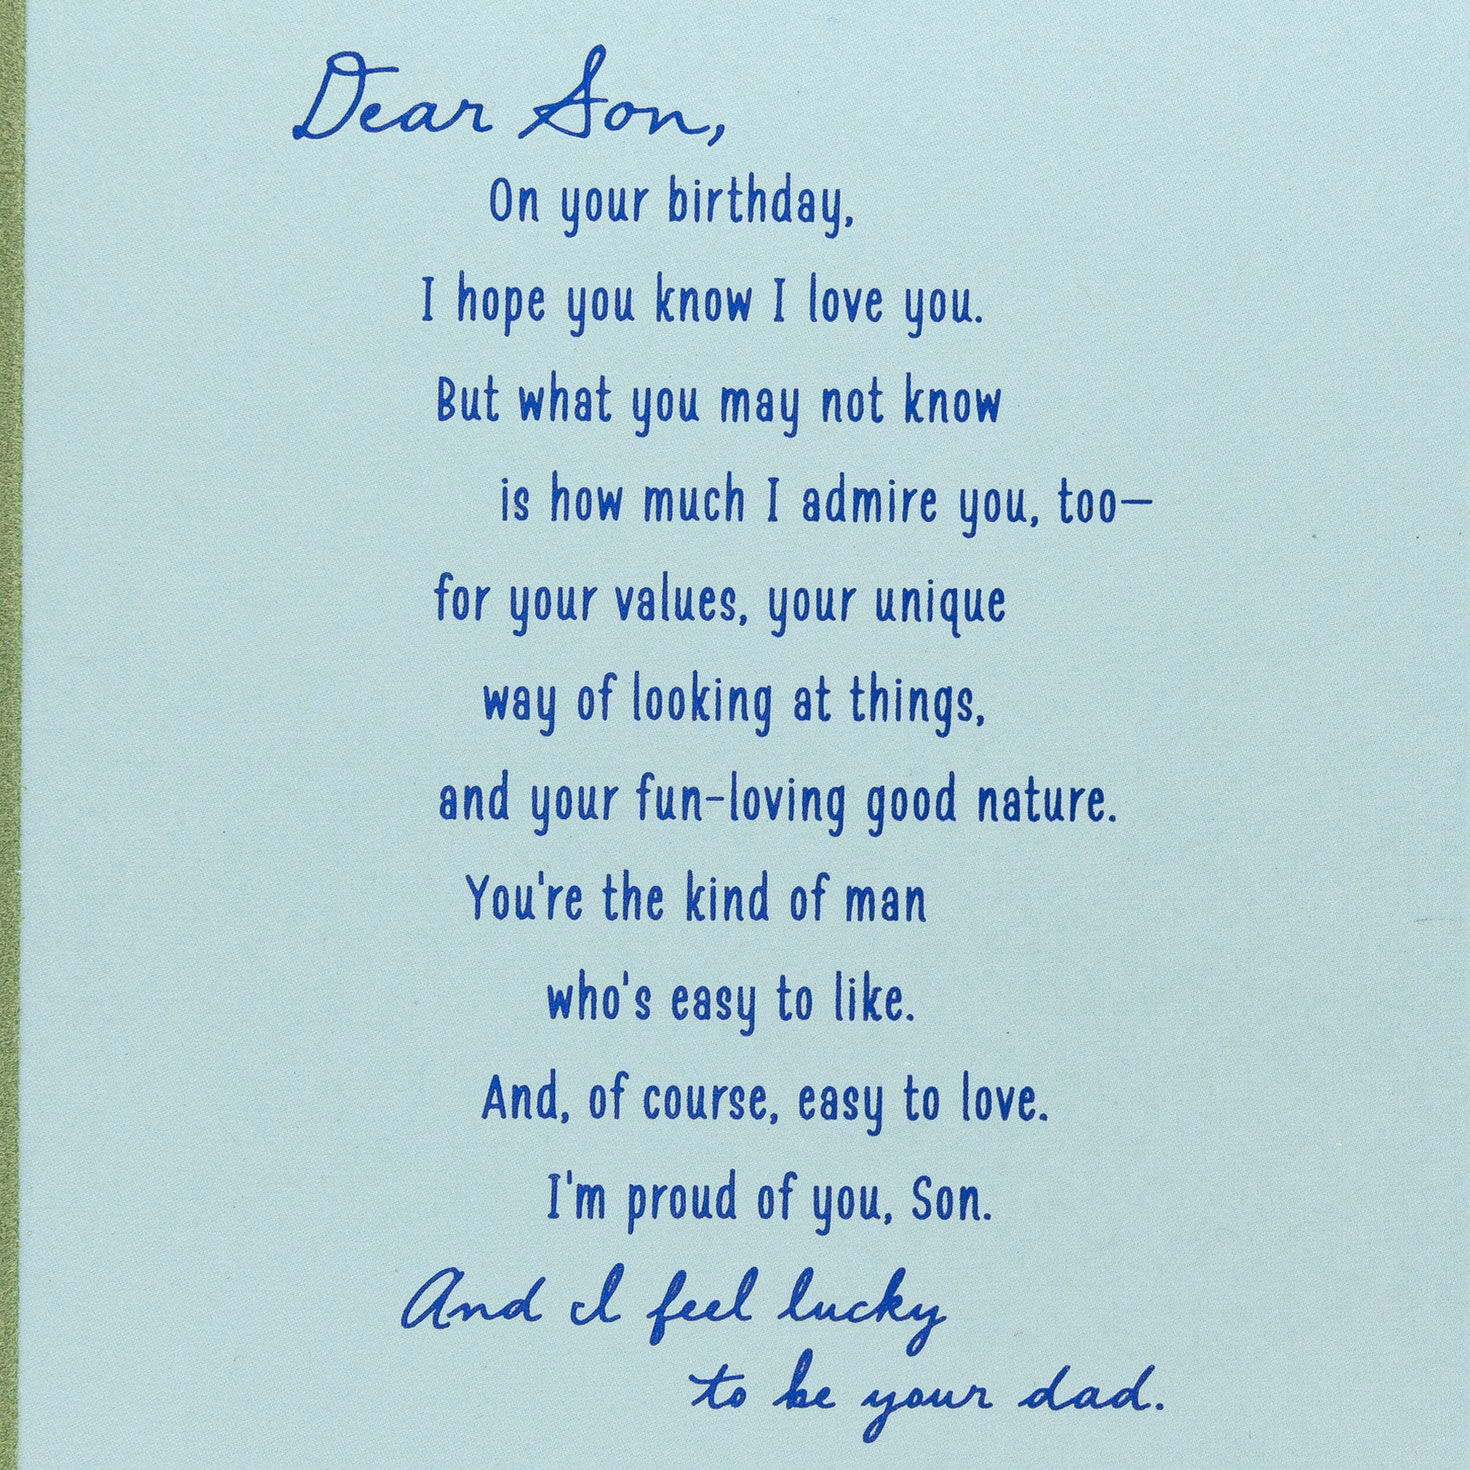 Dear Son,
On your birthday,
I hope you know I love you.
But what you may not know
is how much I admire you, too—
for your values, your unique
way of looking at things,
and your fun-loving good nature.
You're the kind of man
who's easy to like.
And, of course, easy to love.
I'm proud of you, Son.
And I feel lucky
to be your dad.